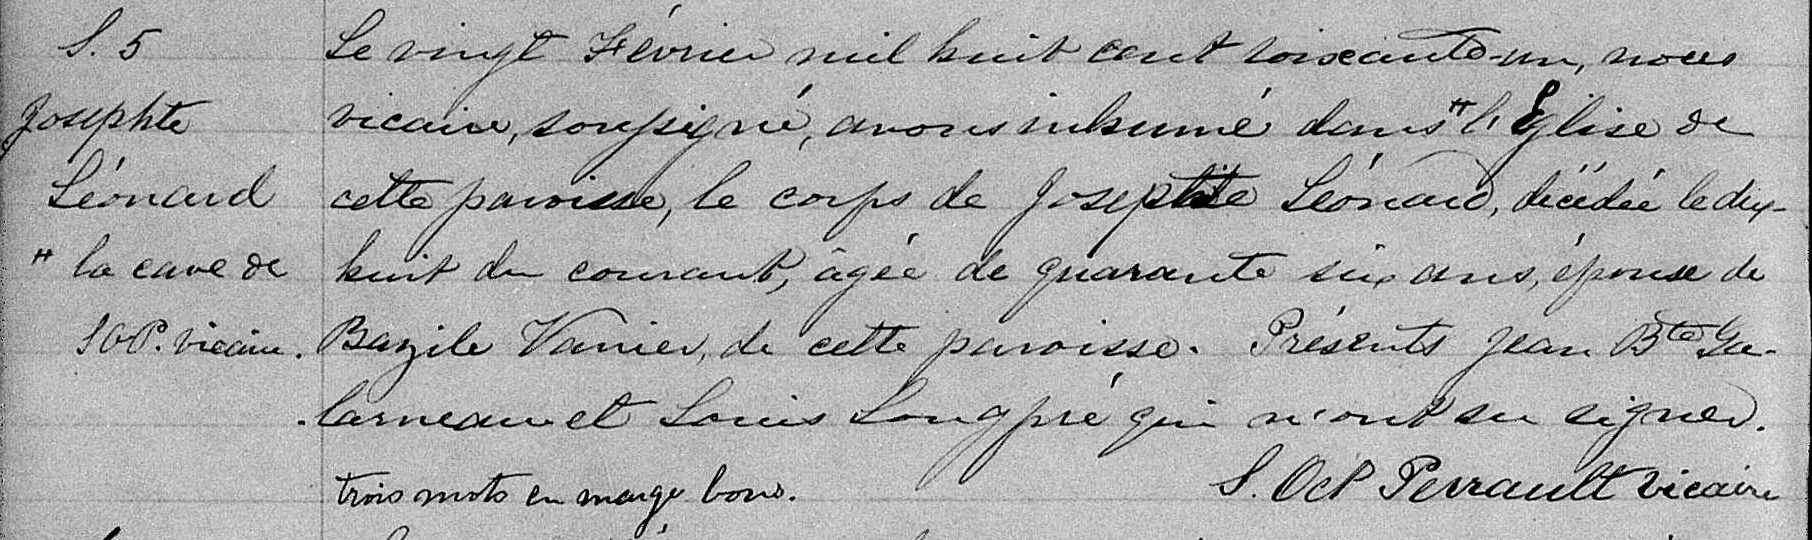 S. 5
Josephte
Léonard
" la cave de
SOP. vicaire.
Le vingt Février mil huit cent soixante-un, nous
vicaire, soussigné, avons inhumé dans " l'Eglise de
cette paroisse, le corps de Josephte Léonard, décédée le dix-
huit du courant, âgée de quarante six ans, épouse de
Bazile Vanier, de cette paroisse. Présents Jean Bte Ga-
larneau et Louis Longpré qui n'ont su signer.
trois mots en marge bons.
S. Oct Perrault vicaire